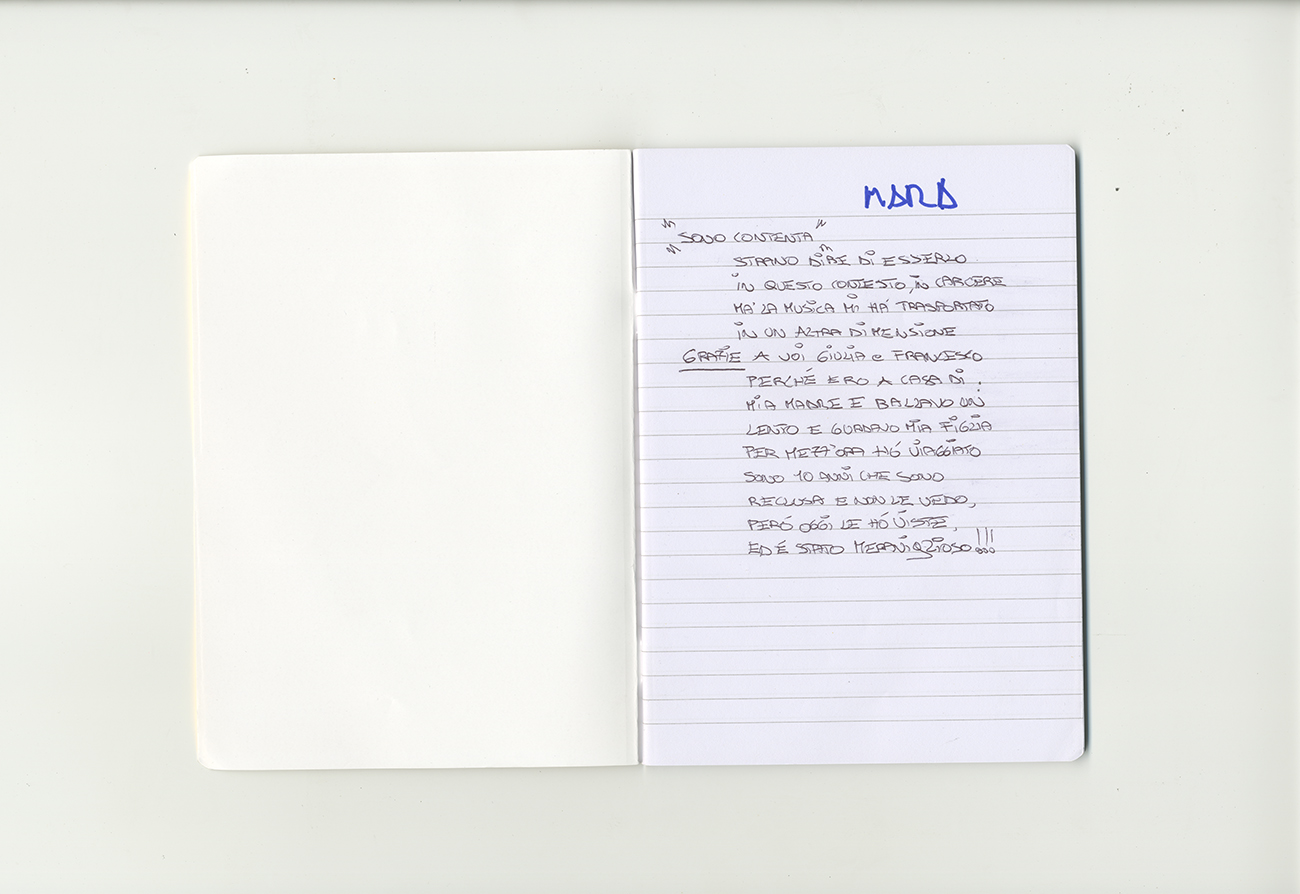 MARA
"SONO CONTENTA"
STRANO DIRE DI ESSERLO
IN QUESTO CONTESTO, IN CARCERE
MA' LA MUSICA MI HÁ TRASPORTATO
IN UN ALTRA DIMENSIONE
GRAZIE A VOI GIULIA e FRANCESCO
PERCHÉ ERO A CASA DI
MIA MADRE E BALLAVO UN
LENTO E GUARDAVO MIA FIGLIA
PER MEZZ'ORA HÓ VIAGGIATO
SONO 10 ANNI CHE SONO
RECLUSA E NON LE VEDO,
PERÓ OGGI LE HÓ VISTE,
ED É STATO MERAVIGLIOSO!!!